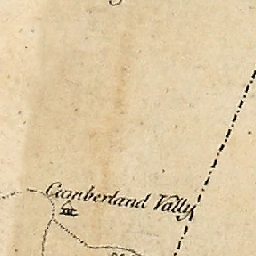 Cumberland Vally